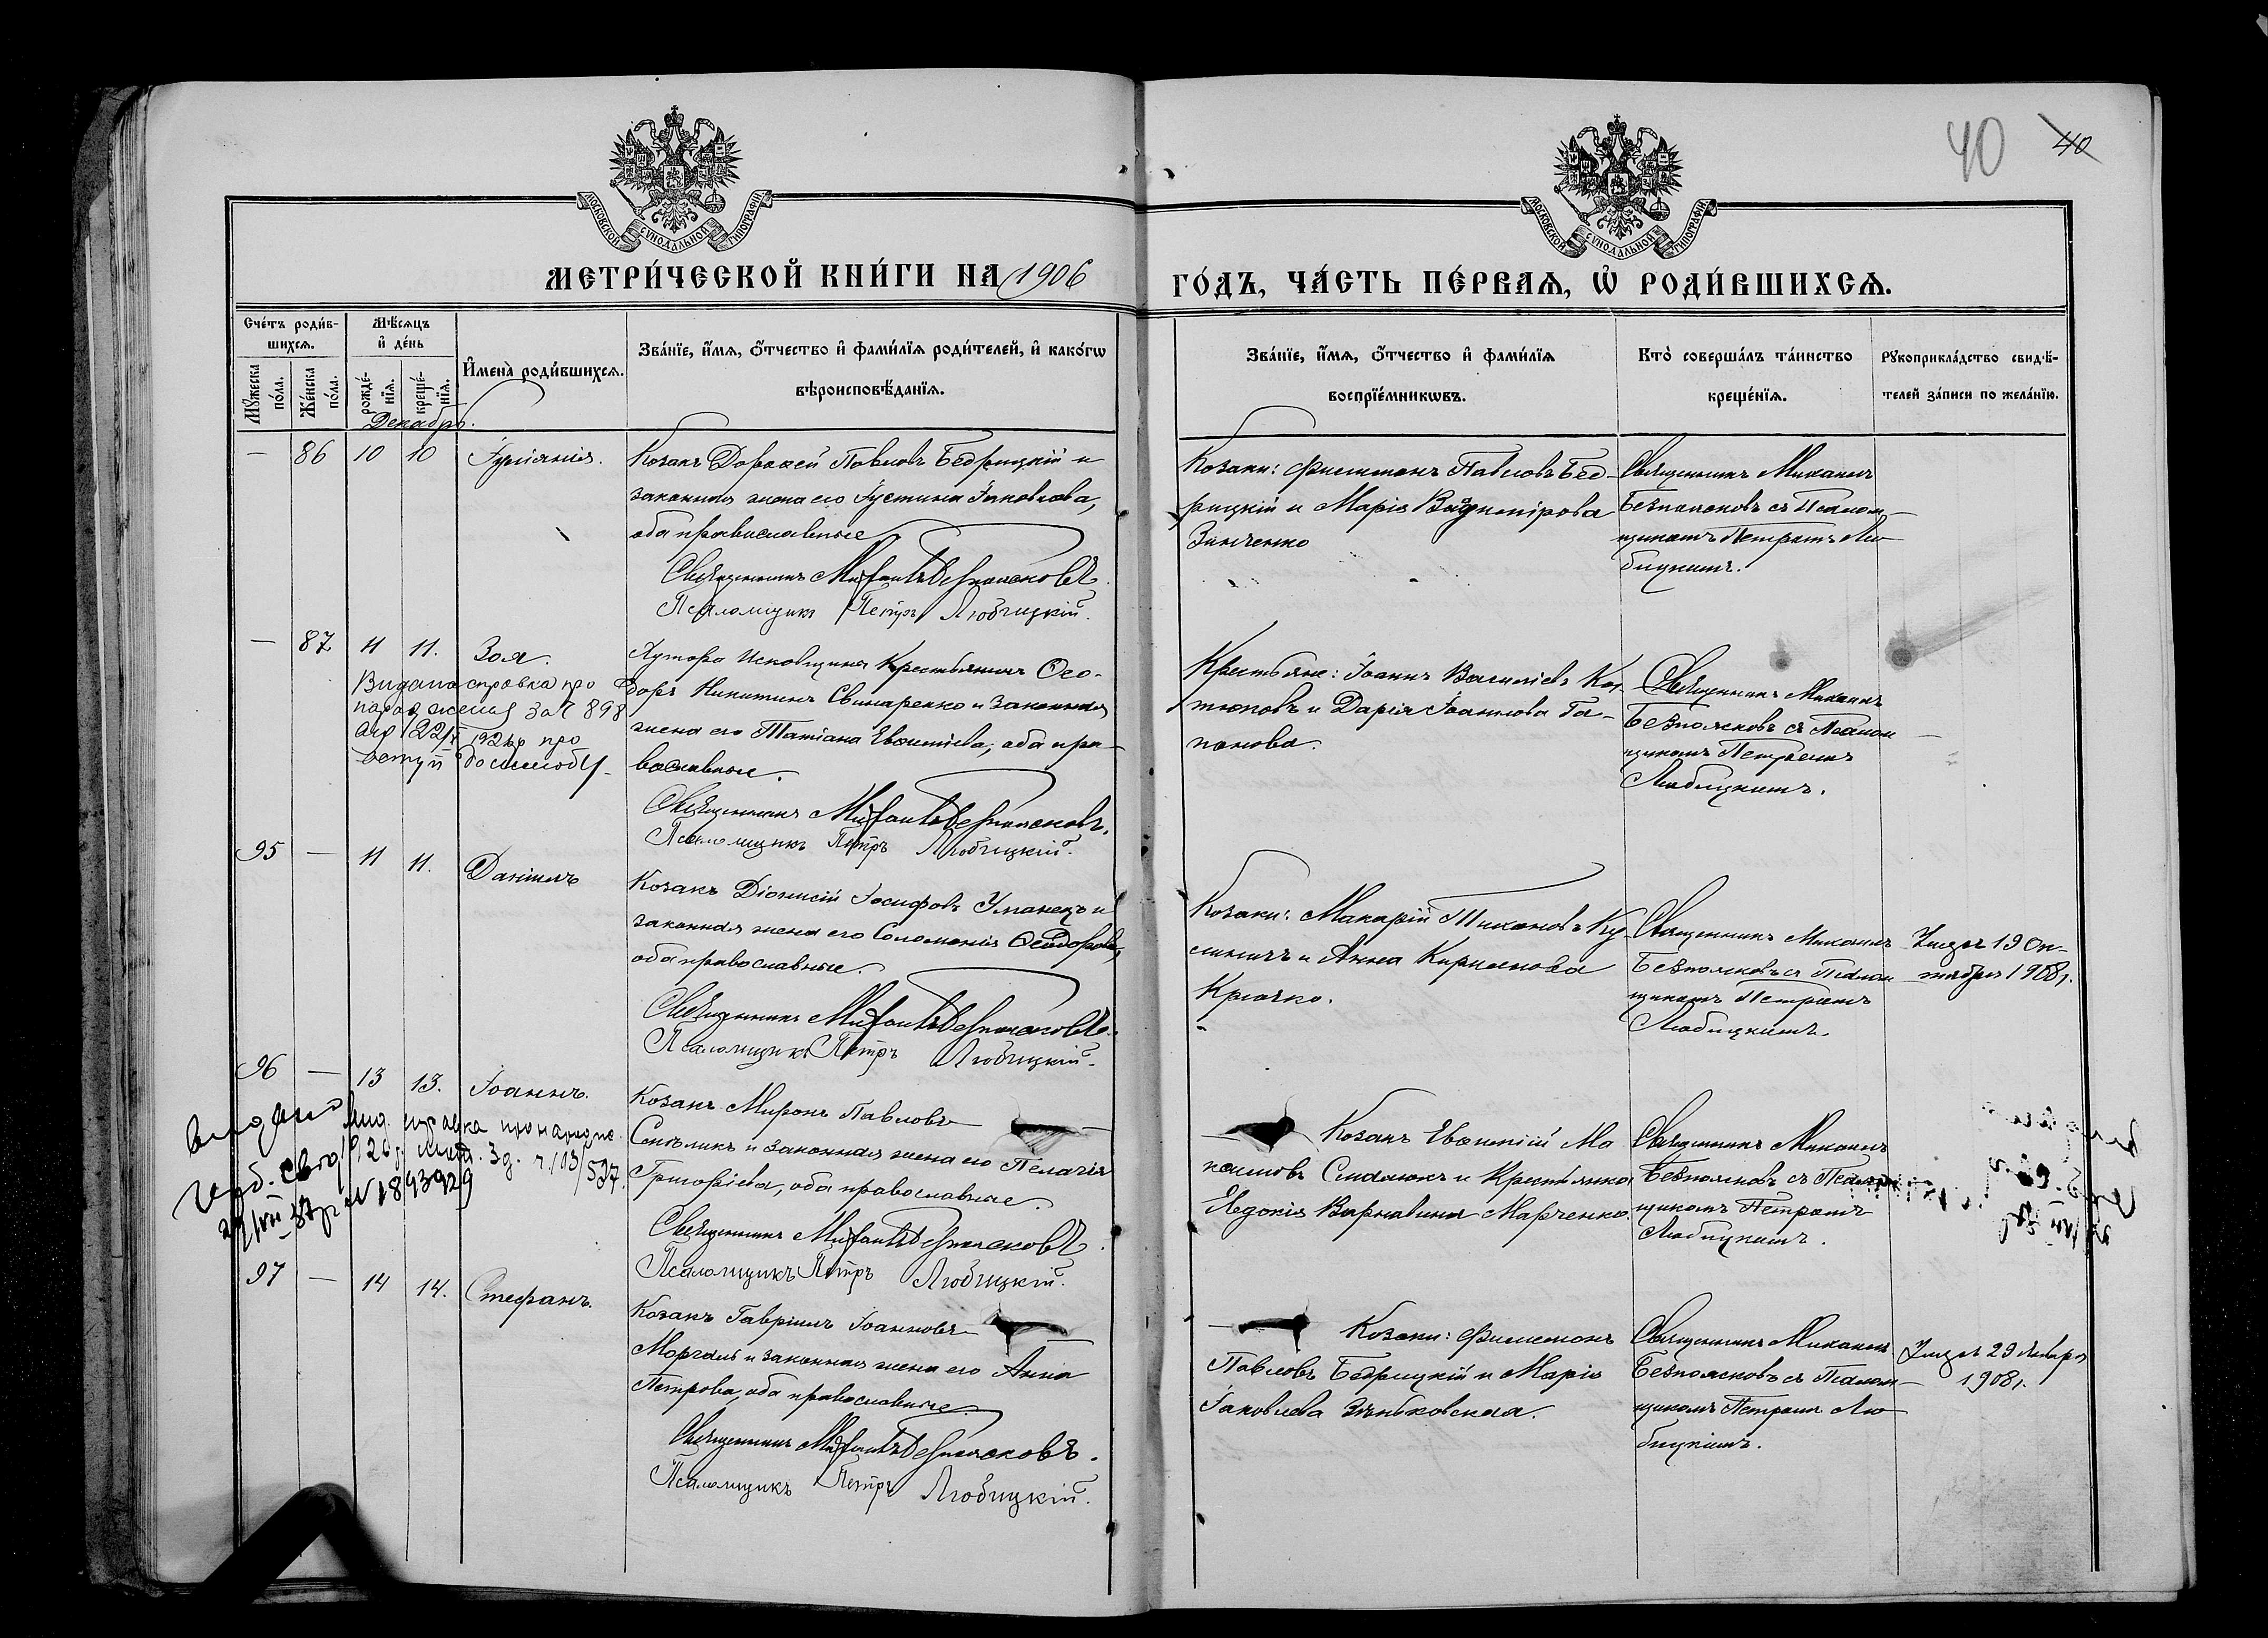 40 40
МОСКОВСКОЙ СѴНОДАЛЬНОЙ ТИПОГРАФІИ
МОСКОВСКОЙ СѴНОДАЛЬНОЙ ТИПОГРАФІИ
МЕТРИ́ЧЕСКОЙ КНИ́ГИ НА 1906
ГО́ДЪ, ЧА́СТЬ ПЕ́РВАѦ, Ѡ҆ РОДИ́ВШИХСѦ.
Сче́тъ роди́в-
шихсѧ.
Мꙋ́жеска
по́ла.
Же́нска
по́ла.
Мѣ́сѧцъ
и҆ де́нь
рожде́-
нїѧ.
креще́-
нїѧ.
И҆мена̀ роди́вшихсѧ.
Зва́нїе, и҆́мѧ, ѻ҆́тчество и҆ фами́лїѧ роди́телей, и҆ како́гѡ
вѣроисповѣ́данїѧ.
Зва́нїе, и҆́мѧ, ѻ҆́тчество и҆ фами́лїѧ
воспрїе́мникѡвъ.
Кто̀ соверша́лъ та́инство
креще́нїѧ.
Рꙋкоприкла́дство свидѣ́-
телей за́писи по жела́нїю.
Декабрь.
— 86 10 10 Іуліанія.
Козакъ Дорофей Павловъ Бедрицкій и
законная жена его Іустина Іаковлева,
оба православные
Священникъ Михаилъ Безпоясковъ.
Псаломщикъ Петръ Любицкій.
Козаки: Филимонъ Павловъ Бед-
рицкій и Марія Владимірова
Зинченко
Священникъ Михаилъ
Безпоясковъ съ Псалом-
щикомъ Петромъ Лю-
бицкимъ.
— 87 11 11. Зоя.
Видана справка про
народження за № 898
22/ 192 р про
вступ до шлюбу
Хутора Исковщина Крестьянинъ Ѳео-
доръ Никитинъ Свинаренко и законная
жена его Татіана Евфиміева, оба пра-
вославные.
Священникъ Михаилъ Безпоясковъ.
Псаломщикъ Петръ Любицкій.
Крестьяне: Іоаннъ Василіевъ Ко-
тюковъ и Дарія Іоаннова Га-
понова.
Священникъ Михаилъ
Безпоясковъ съ Псалом
щикомъ Петромъ
Любицкимъ.
95 — 11 11. Даніилъ
Козакъ Діонисій Іосифовъ Уманецъ и
законная жена его Соломонія Ѳеодорова,
оба православные.
Священникъ Михаилъ Безпоясковъ.
Псаломщикъ Петръ Любицкій.
Козаки: Макарій Тихоновъ Ку-
линичъ и Анна Кириллова
Крючко.
Священникъ Михаилъ
Безпоясковъ съ Псалом
щикомъ Петромъ
Любицкимъ.
Умеръ 19 Ок-
тября 1908 г.
96 — 13 13. Іоаннъ.
видано
Вид. справка про народже.
1926 р. 3д. ч. 103/597.
27/VIII 37 р № 1893929
Козакъ Миронъ Павловъ —
Сопѣликъ и законная жена его Пелагія
Григоріева, оба православные.
Священникъ Михаилъ Безпоясковъ.
Псаломщикъ Петръ Любицкій.
— Козакъ Евфимій Ма
ксимовъ Смалюкъ и Крестьянка
Евдокія Варнавина Марченко.
Священникъ Михаилъ
Безпоясковъ съ Псалом
щикомъ Петромъ
Любицкимъ.
97 — 14 14. Стефанъ.
Козакъ Гавріилъ Іоанновъ —
Моргаль и законная жена его Анна
Петрова, оба православные.
Священникъ Михаилъ Безпоясковъ.
Псаломщикъ Петръ Любицкій.
— Козаки: Филимонъ
Павловъ Бедрицкій и Марія
Іаковлева Зѣньковская.
Священникъ Михаилъ
Безпоясковъ съ Псалом-
щикомъ Петромъ Лю-
бицкимъ.
Умеръ 29 Января
1908 г.